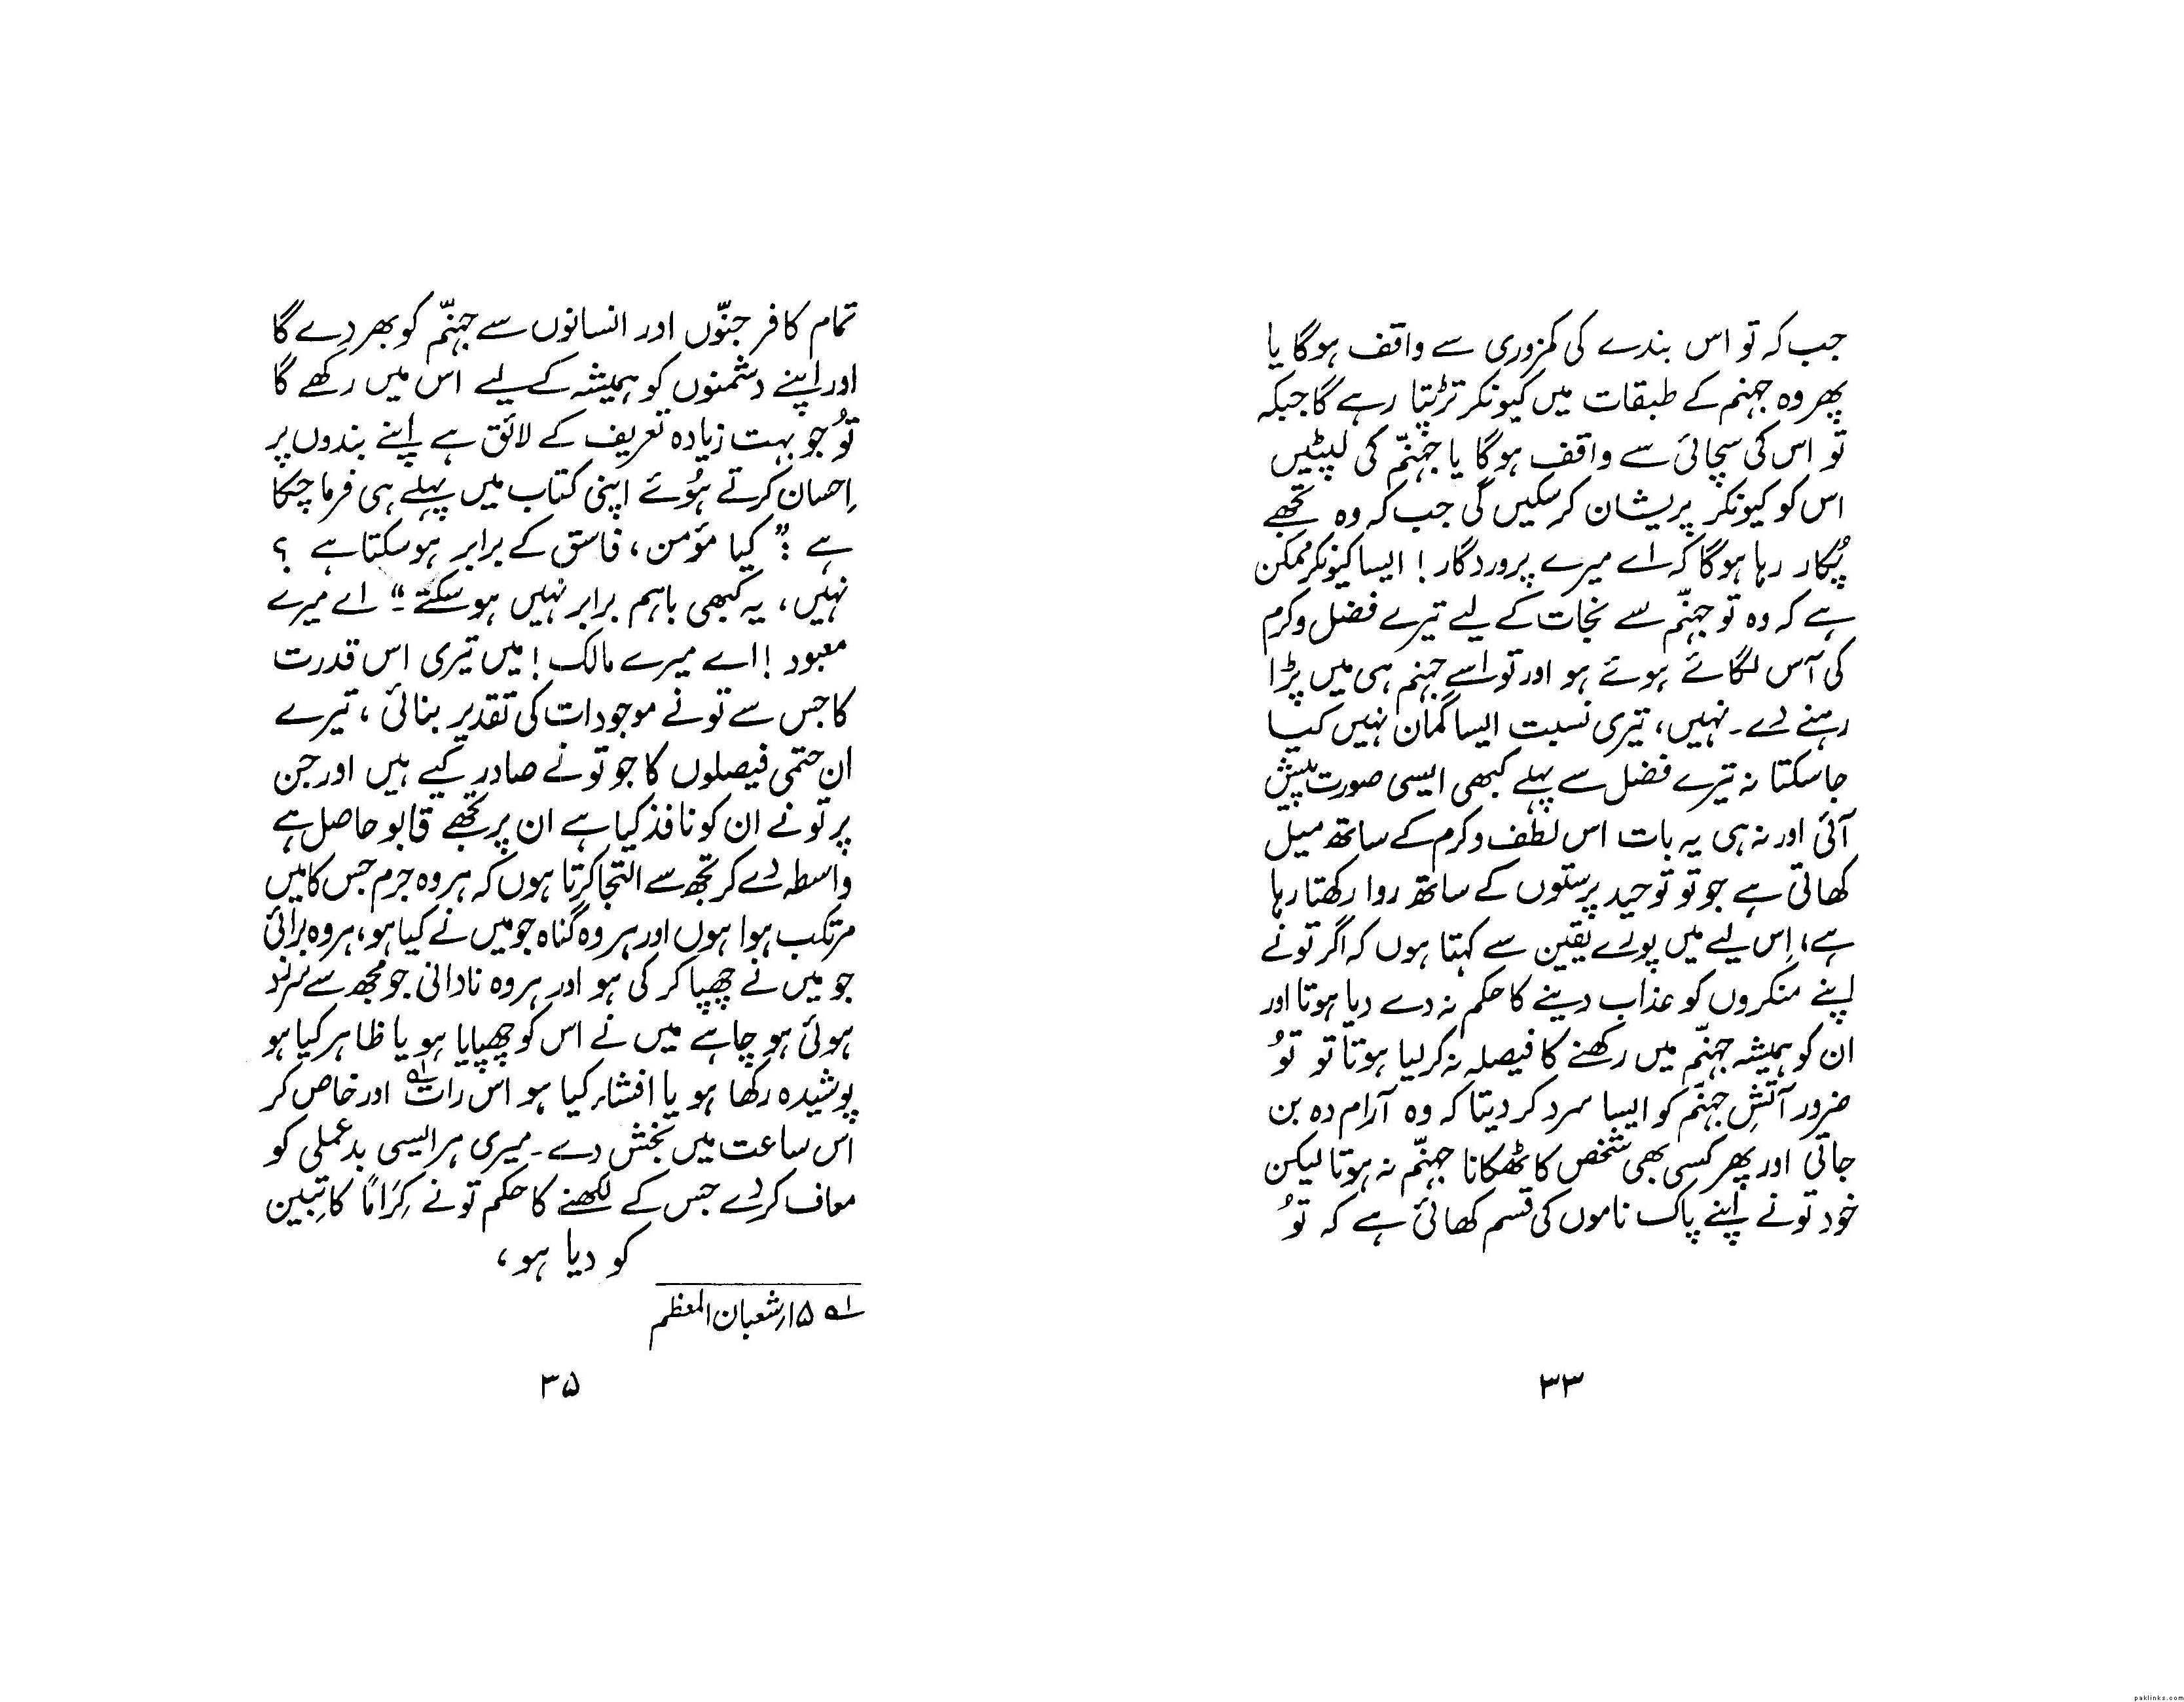 جب کہ تو اس بندے کی کمزوری سے واقف ہوگا یا
پھر وہ جہنم کے طبقات میں کیونکر تڑپتا رہے گا جبکہ
تو اس کی سچائی سے واقف ہوگا یا جہنّم کی لپٹیں
اس کو کیونکر پریشان کرسکیں گی جب کہ وہ تجھے
پُکار رہا ہوگا کہ اے میرے پروردگار! ایسا کیونکر ممکن
ہے کہ وہ تو جہنّم سے نجات کے لیے تیرے فضل وکرم
کی آس لگائے ہوئے ہو اور تو اسے جہنم ہی میں پڑا
رہنے دے۔ نہیں، تیری نسبت ایسا گمان نہیں کیا
جاسکتا نہ تیرے فضل سے پہلے کبھی ایسی صورت پیش
آئی اور نہ ہی یہ بات اس لطف وکرم کے ساتھ میل
کھاتی ہے جو تو توحید پرستوں کے ساتھ روا رکھتا رہا
ہے، اِس لیے میں پورے یقین سے کہتا ہوں کہ اگر تو نے
اپنے منکروں کو عذاب دینے کا حکم نہ دے دیا ہوتا اور
ان کو ہمیشہ جہنّم میں رکھنے کا فیصلہ نہ کرلیا ہوتا تو توُ
ضرور آتشِ جہنّم کو ایسا سرد کر دیتا کہ وہ آرام دہ بن
جاتی اور پھر کسی بھی شخص کا ٹھکانا جہنّم نہ ہوتا لیکن
خود تو نے اپنے پاک ناموں کی قسم کھائی ہے کہ توُ
۳۳
تمام کافر جنّوں اور انسانوں سے جہنّم کو بھر دے گا
اور اپنے دشمنوں کو ہمیشہ کے لیے اس میں رکھے گا
توُ جو بہت زیادہ تعریف کے لائق ہے اپنے بندوں پر
اِحسان کرتے ہُوئے اپنی کتاب میں پہلے ہی فرما چکا
ہے : ”کیا مؤمن، فاسق کے برابر ہوسکتا ہے ؟
نہیں، یہ کبھی باہم برابر نہیں ہوسکتے۔“ اے میرے
معبود ! اے میرے مالک ! میں تیری اس قدرت
کا جس سے تو نے موجودات کی تقدیر بنائی، تیرے
ان حتمی فیصلوں کا جو تو نے صادر کیے ہیں اور جن
پر تو نے ان کو نافذ کیا ہے ان پر تجھے قابو حاصل ہے
واسطہ دے کر تجھ سے التجا کرتا ہوں کہ ہر وہ جرم جس کا میں
مرتکب ہوا ہوں اور ہر وہ گناہ جو میں نے کیا ہو، ہر وہ برائی
جو میں نے چھپا کر کی ہو اور ہر وہ نادانی جو مجھ سے سرزد
ہوئی ہو چاہے میں نے اس کو چھپایا ہو یا ظاہر کیا ہو
پوشیدہ رکھا ہو یا افشاء کیا ہو اس رات؎۱ اور خاص کر
اس ساعت میں بخش دے۔ میری ہر ایسی بدعملی کو
معاف کردے جس کے لکھنے کا حکم تو نے کِرَامًا کاتِبین
کو دیا ہو،
؎۱ ۱۵ر شعبان المعظم
۳۵
paklinks.com